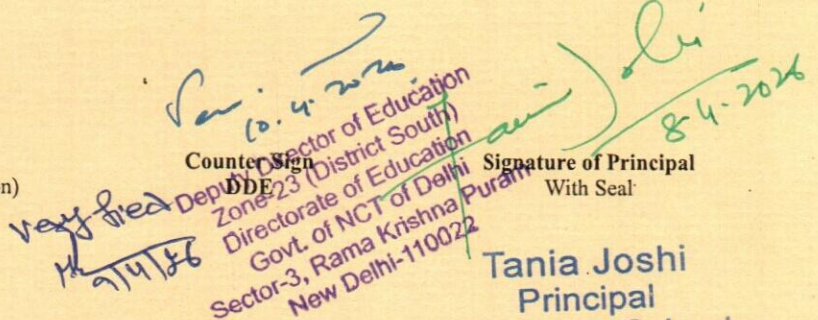 10.4.2026
8-4-2026
Counter Sign
DDE
Signature of Principal
With Seal
n)
Deputy Director of Education
Zone-23 (District South)
Directorate of Education
Govt. of NCT of Delhi
Sector-3, Rama Krishna Puram
New Delhi-110022
veryfied
9/4/26
Tania Joshi
Principal